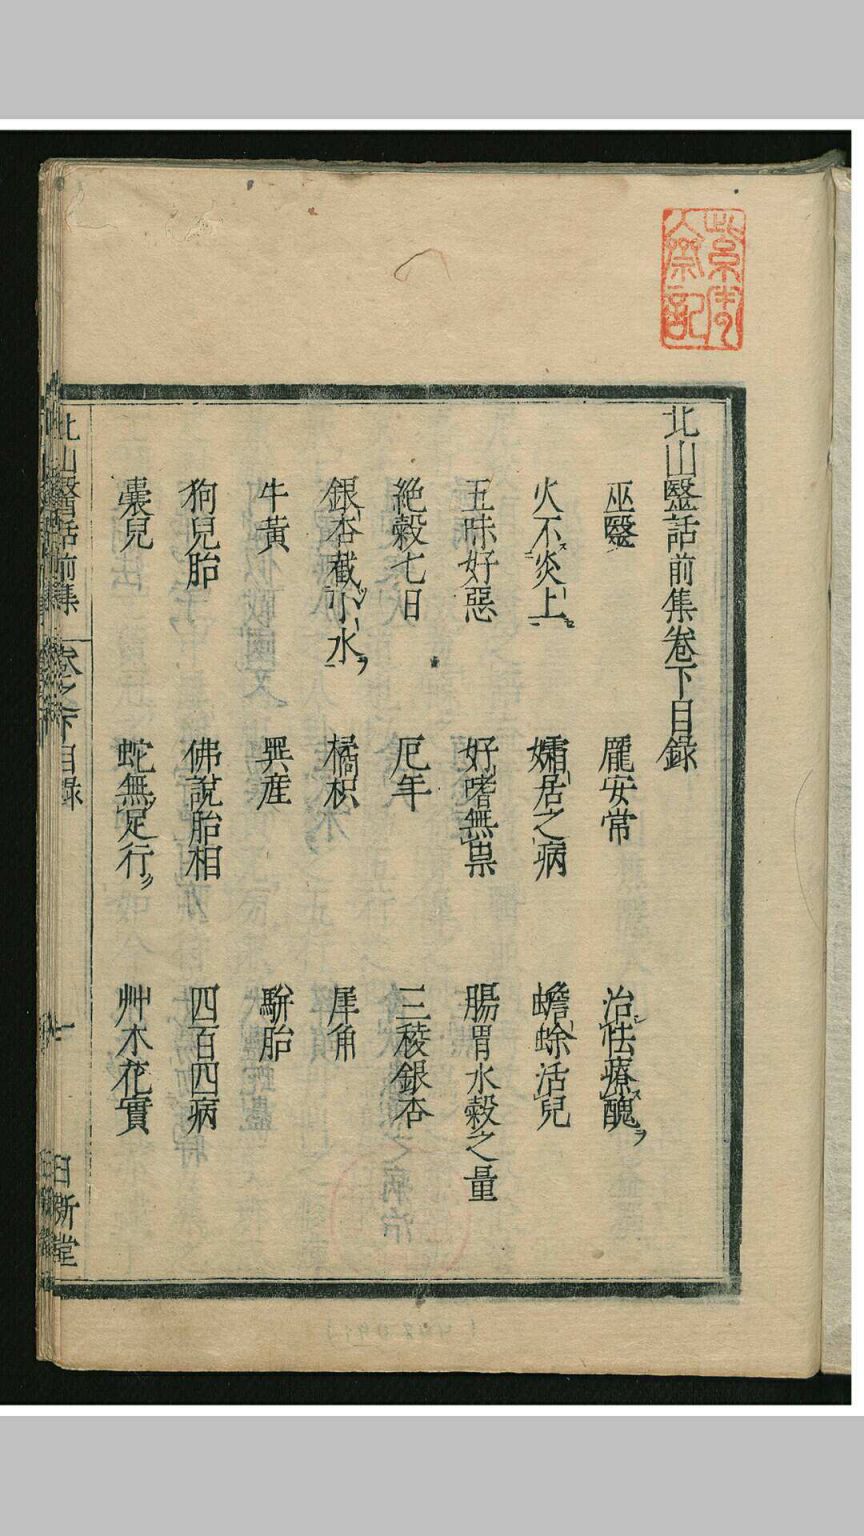 北山毉話前集卷下目錄
巫毉 龐安常 治怯療醜ヲ
火不炎上 孀居之病 蟾蜍活兒
五味好惡 好嗜無祟 腸胃水穀之量
絕穀七日 厄年 三稜銀杏
銀杏截小水ヲ 橘枳 犀角
牛黃 異産 駢胎
狗兒胎 佛說胎相 四百四病
囊兒 蛇無足行ク 艸木花實
北山醫話前集 卷之下目錄 一 日新堂